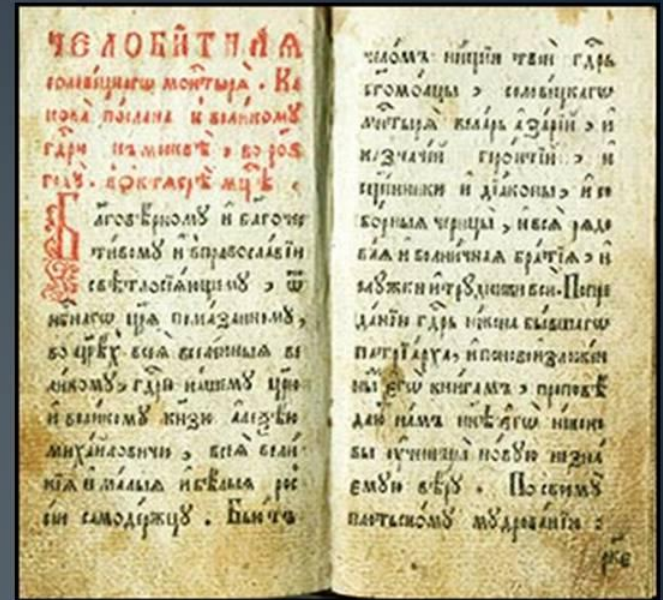 ЧЕЛОБИ́ТНАЯ
соловѣцкагѡ монⷭ҇тырѧ̀. Ка
кова̀ по́слана к вели́кому
гдⷭ҇рю къ москвѣ̀, во
годꙋ̀. в̾ ѻ҆ктѧбрѣ̀ мцⷭ҇ѣ.
Бл҃говѣ́рномꙋ и҆ бл҃гоче
ти́вомꙋ и҆ в̾правосла́вїи
свѣтлосїѧ́ющемꙋ, ѿ
нбⷭ҇нагѡ цр҃ѧ̀ пома́занномꙋ,
во цр҃ѣхъ всеѧ̀ вселе́нныѧ ве
ли́комꙋ, гдⷭ҇рю на́шемꙋ цр҃ю
и҆ вели́комꙋ кнѕ҃ю а҆леѯѣ́ю
миха́йловичю, всеѧ̀ вели́
кїѧ и҆ ма́лыѧ и҆ бѣ́лыѧ рос
сі́и самоде́ржцꙋ. Бью́тъ
чело́мъ ни́щїи твоѝ гдⷭ҇рь
бг҃омо́лцы, солове́цкагѡ
мⷭ҇нтырѧ̀ ке́ларь а҆за́рїй, и҆
казначе́й геро́нтїй, и҆
сщ҃е́нники и҆ дїа́коны, и҆ со
бо́рныѧ черньцы̀, и҆ всѧ̀ рѧдо
ва́ѧ и҆ болни́чнаѧ бра́тїѧ, и҆
слꙋ́жки и҆ трꙋ́дники всѝ. По пре
да́нїю гдⷭ҇рь ни́кона бы́вшагѡ
патрїа́рха, и҆ по новоизложе́н
ны є҆гѡ̀ кни́гамъ, проповѣ́
даю на́мъ нн҃ѣ є҆гѡ̀ ни́коно
вы ᲂу҆ченицы̀ но́вꙋю незна́
емꙋю вѣ́рꙋ. По своемꙋ̀
пло́тьскомꙋ мꙋдрова́нїю: